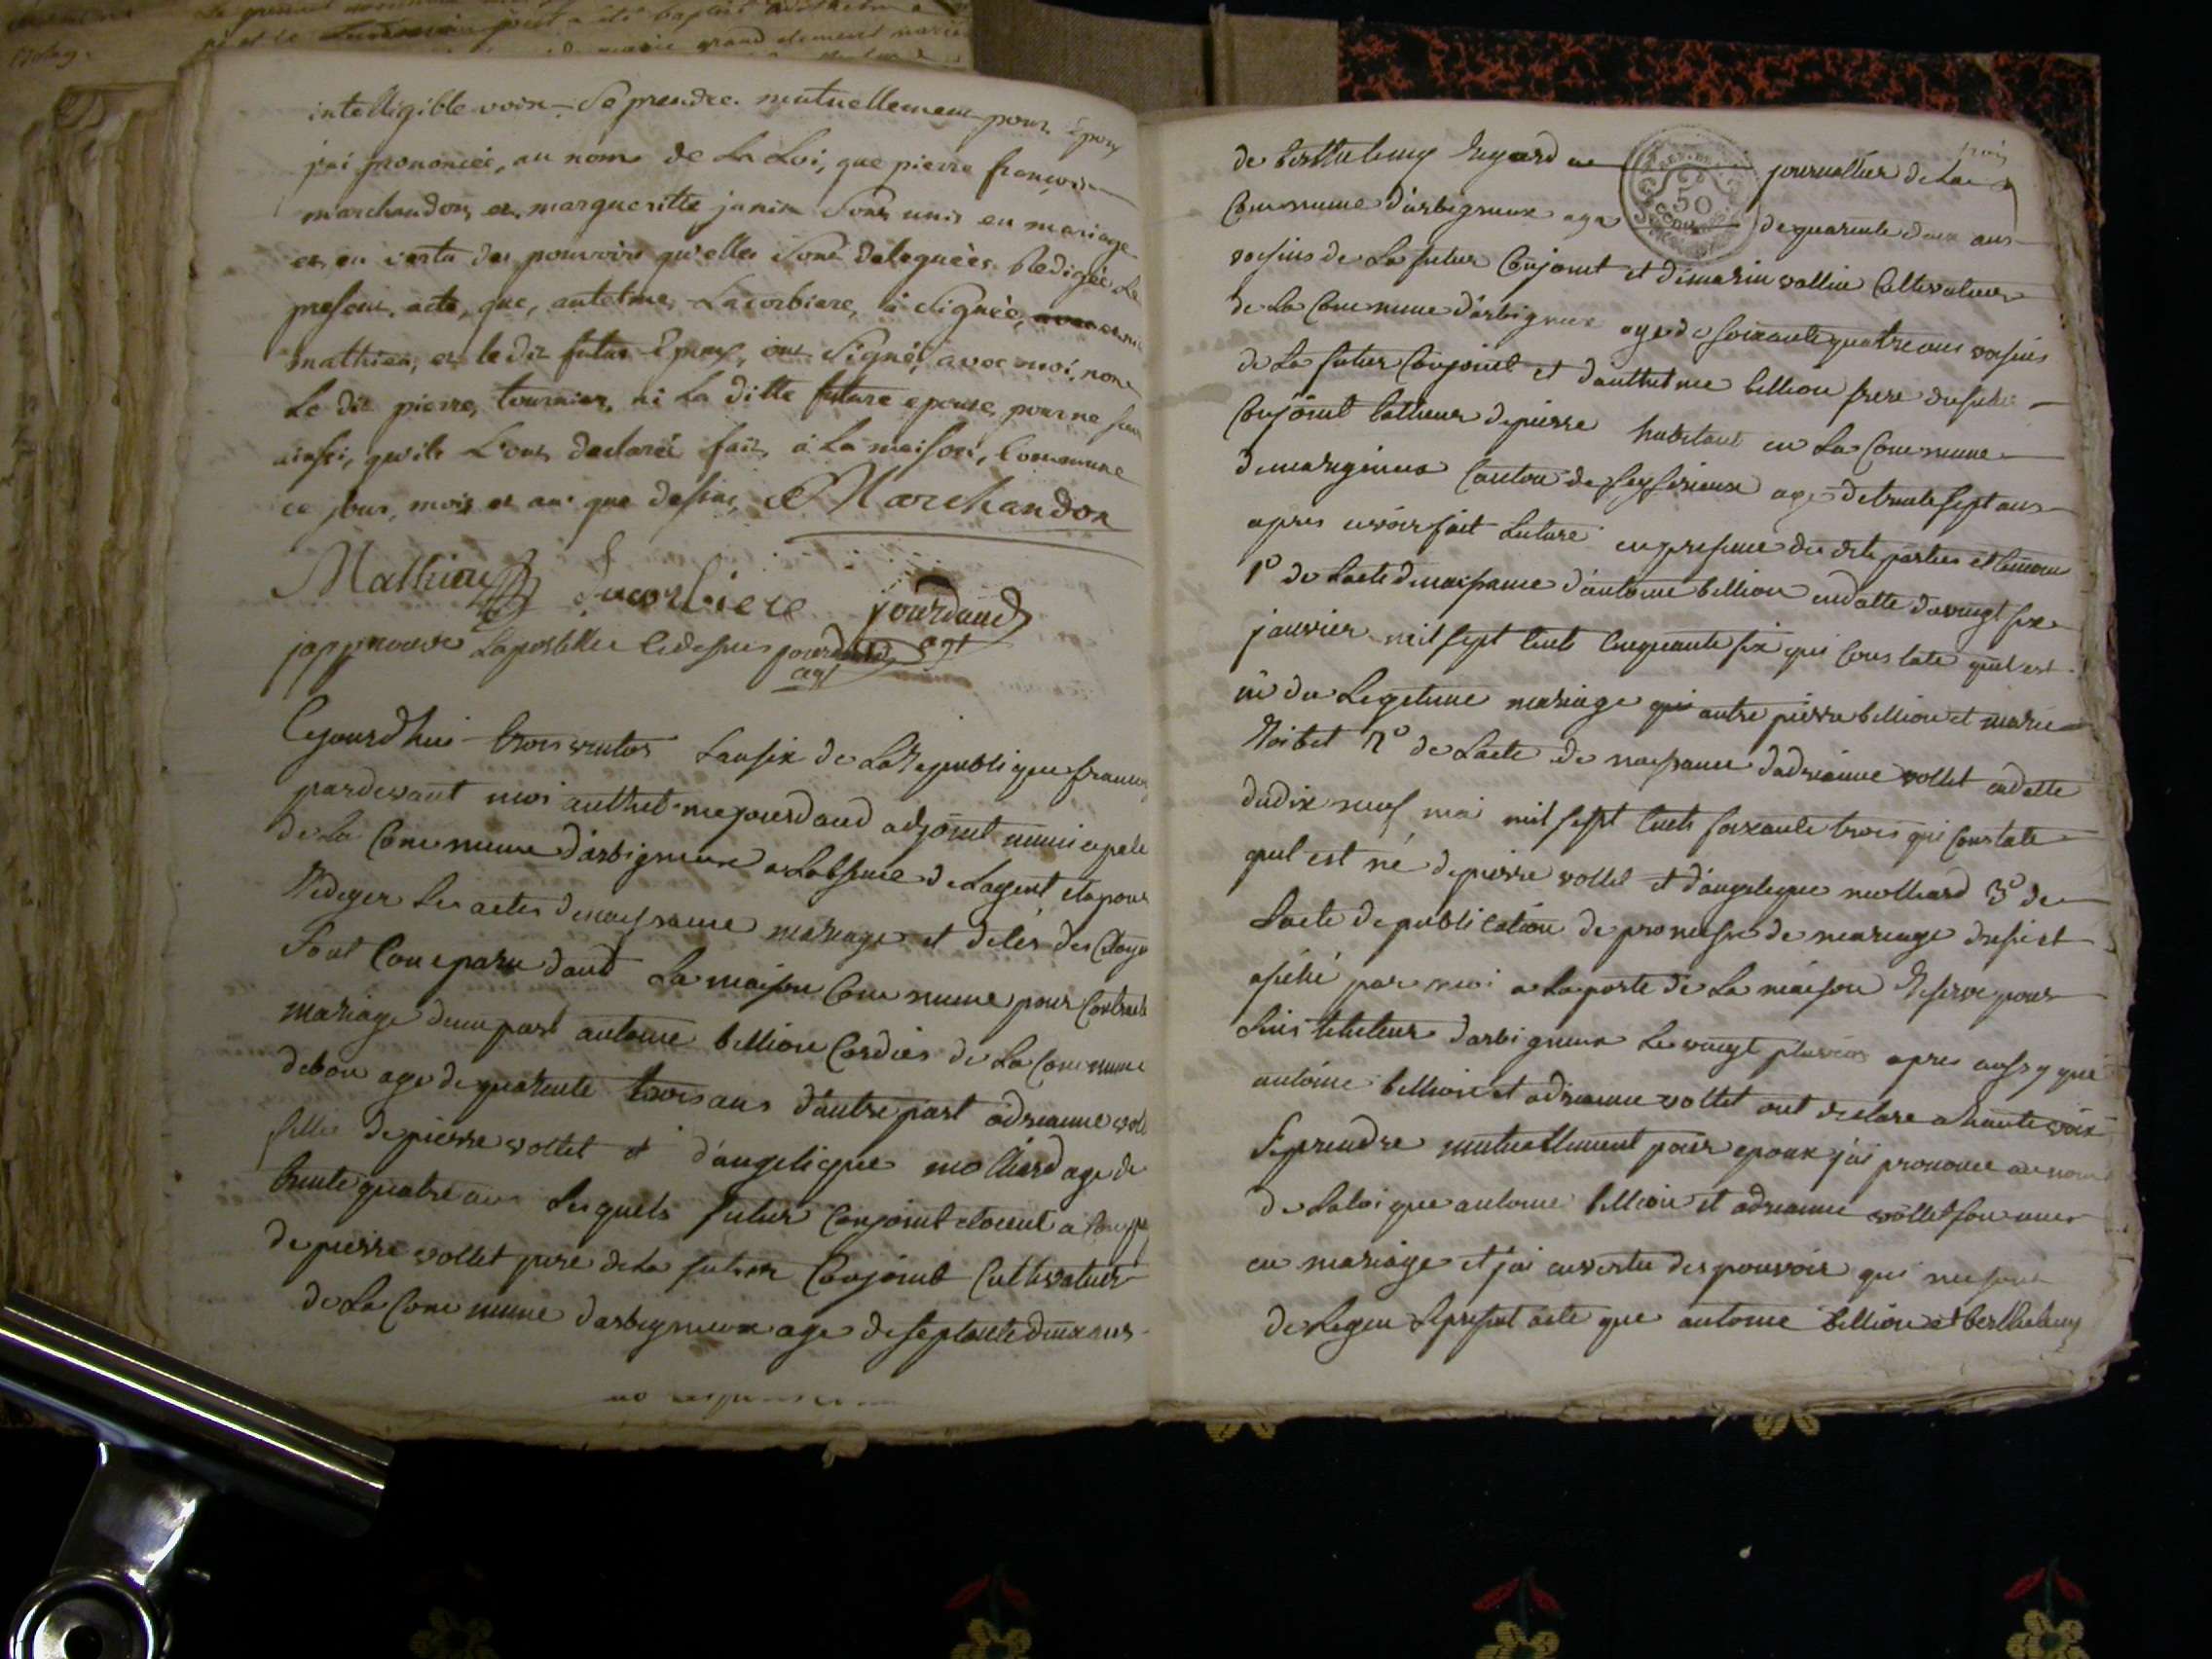 intelligible voix Se prendre mutuellement pour Epoux
j'ai prononcée, au nom de La Loi, que pierre françois
marchandon, et margueritte janin Sont unis en mariage
et en vertu des pouvoirs qu'elles Sont deleguées Redigée Le
presant acte, que, antelme, Lacorbiere, à Signée,
mathieu, et le dit futur Epoux, ont Signé, avec moi, non
Le dit pierre, tournier, ni La ditte future epouse, pour ne
ainsi, qu'ils L'ont declarée fait, à La maison, Commune
ce jour, mois et an que dessus, Marchandon
Mathieu Lacorbiere jourdand
japprouve Lapostille Cidessus jourdand agt
agt
Cejourdhui trois Lansix de La Republique
pardevant moi anthelme jourdand adjoint municipale
de La Commune darbignieux a Labsance de Lagent et pour
Rediger Les actes denaissance mariage et deles des
Sont Comparu dand La maison Commune pour
mariage dunepart antoine billion Cordier de La Commune
debon age de quarante trois ans d'autre part adrianne
fille de pierre vollet et d'angelique molliard age de
trente quatre ans Lesquels futur Conjoint etoient
de pierre vollet pere de La futur Conjoint Cultivateur
de La Commune darbignieux age de septante deux ans
de berthelemy Reynard journallier de La
Commune d'arbignieux age de quarante deux ans
voisins de La futur Conjoint et de marin vallin Cultivateur
de La Commune d'arbignieux age de soixante quatre ans voisins
de La futur Conjoint et d'anthelme billion frere du futur
Conjoint depierre habitant en La Commune
demaregnieux Canton de seyserieux age detrante sept ans
apres avoir fait Lecture en presence des dits parties et temoins
1º de Lacte denaissance d'antoine billion en datte du vingt six
janvier mil sept Cents Cinquante six qui Constate quil est
né du Legetime mariage qui entre pierre billion et marie
2º de Lacte de naissance d'adrianne vollet en datte
du dix neuf mai mil sept Cents soixante trois qui Constate
quil est né depierre vollet et d'angelique molliard 3º de
Lacte de publication de promesse de mariage dresse et
afiché par moi a La porte de La maison Reserve pour
Linstituteur darbignieux Le vingt pluvios apres aussy que
antoine billion et adrianne vollet ont declare a haute voix
Seprendre mutuellement pour epoux j'ai prononce au nom
de Laloi que antoine billion et adrianne vollet son unis
en mariage et j'ai en vertu des pouvoir qui me sont
delegue Lepresent acte que antoine billion et berthelemy